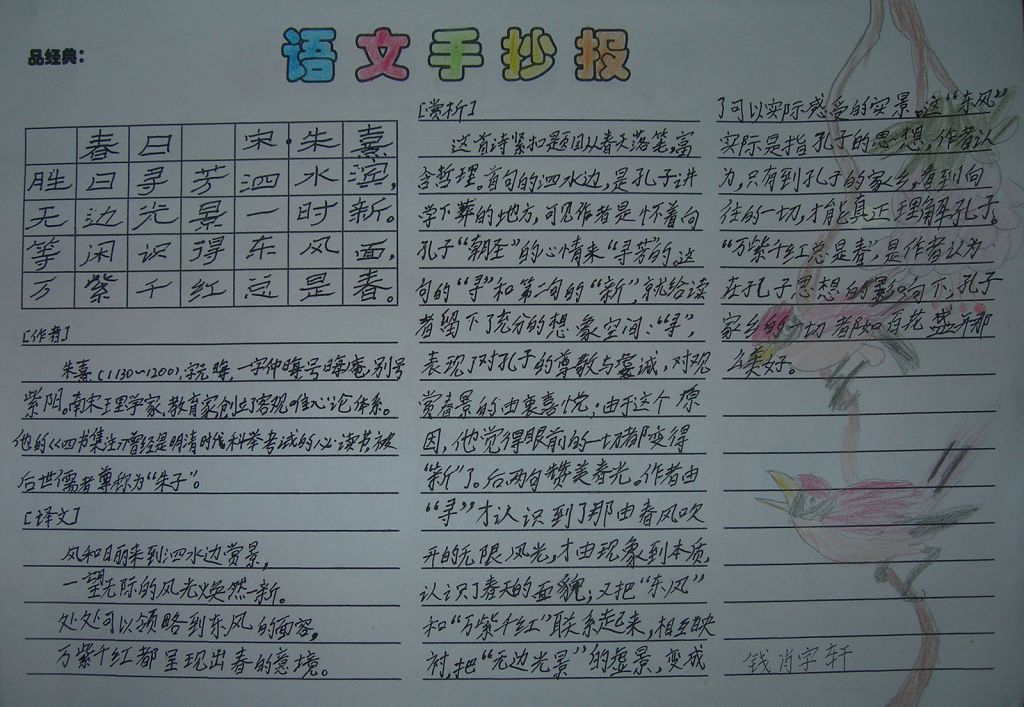 品经典：
语文手抄报
春日 宋·朱熹
胜日寻芳泗水滨，
无边光景一时新。
等闲识得东风面，
万紫千红总是春。
[作者]
朱熹（1130～1200），字元晦，一字仲晦，号晦庵，别号
紫阳。南宋理学家、教育家，创立了客观唯心论体系。
他的《四书集注》曾经是明清时代科举考试的必读书，被
后世儒者尊称为“朱子”。
[译文]
风和日丽来到泗水边赏景，
一望无际的风光焕然一新。
处处可以领略到东风的面容，
万紫千红都呈现出春的意境。
[赏析]
这首诗紧扣题目从春天落笔，富
含哲理。首句的泗水边，是孔子讲
学下葬的地方，可见作者是怀着向
孔子“朝圣”的心情来“寻芳”的。这
句的“寻”和第二句的“新”，就给读
者留下了充分的想象空间：“寻”，
表现了对孔子的尊敬与虔诚，对观
赏春景的由衷喜悦；由于这个原
因，他觉得眼前的一切都变得
“新”了。后两句赞美春光。作者由
“寻”才认识到了那由春风吹
开的无限风光，才由现象到本质，
认识了春天的面貌；又把“东风”
和“万紫千红”联系起来，相互映
衬，把“无边光景”的虚景，变成
了可以实际感受的实景。这“东风”
实际是指孔子的思想，作者认
为，只有到孔子的家乡，看到向
往的一切，才能真正理解孔子。
“万紫千红总是春”，是作者认为
在孔子思想的影响下，孔子
家乡的一切都如百花盛开那
么美好。
钱肖宇轩